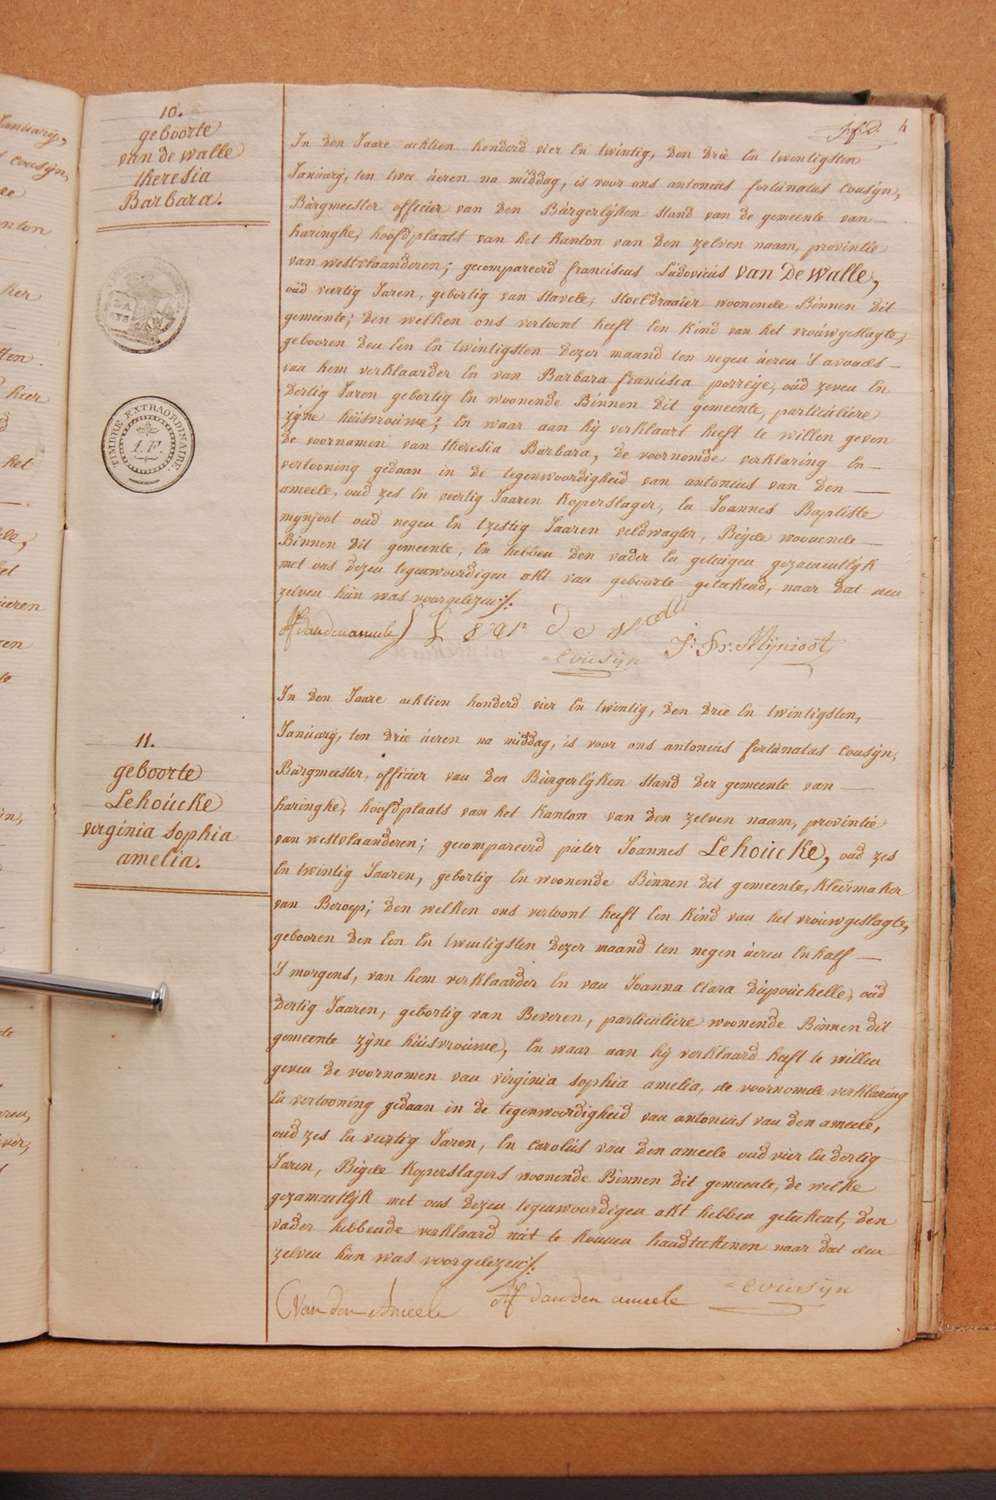 4
10.
geboorte
van de walle
theresia
Barbara.
TIMBRE EXTRAORDINAIRE
1. F.
In den Jaare achtien honderd vier En twintig, den drie En twintigsten
Januarÿ, ten twee úeren na middag, is voor ons antoniús fortúnatus Cousÿn,
Búrgmeester officier van den Búrgerlÿken stand van de gemeente van
haringhe, hoofdplaats van het kanton van den zelven naam, provintie
van westvlaanderen; gecompareerd franciscus Lúdovicús van De walle,
oúd veertig Jaren, gebortig van stavele, stoeldraaier woonende Binnen dit
gemeente; den welken ons vertoont heeft Een kind van het vroúwgeslagte,
gebooren den Een En twintigsten dezer maand ten negen úeren 's avonds
van hem verklaarder En van Barbara francisca porreÿe, oúd zeven En
dertig Jaren gebortig En woonende Binnen dit gemeente, particúliere
zÿne húisvroúwe; En waar aan hÿ verklaart heeft te willen geven
de voornamen van theresia Barbara, de voornomde verklaring En
vertooning gedaan in de tegenwoordigheid van antoniús van den
ameele, oud zes En veertig Jaaren koperslager, En Joannes Baptiste
mÿnjoot oud negen En tzestig Jaaren veldwagter, Beÿde woonende
Binnen dit gemeente, En hebben den vader En getuigen gezamentlÿk
met ons dezen tegenwoordigen akt van geboorte geteekend, naar dat aen
zelven hún was voorgelezen ./.
AF vandenameele
Cousÿn
J: Bs: Mÿnjoot
11.
geboorte
Lehoúcke
virginia sophia
amelia.
In den Jaare achtien honderd vier En twintig, den drie En twintigsten,
Januarÿ, ten drie úeren na middag, is voor ons antoniús fortúnatus Cousÿn,
Búrgmeester, officier van den Búrgerlÿken stand der gemeente van
haringhe, hoofdplaats van het kanton van den zelven naam, provintie
van westvlaanderen; gecompareerd pieter Joannes Lehoúcke, oud zes
En twintig Jaaren, gebortig En woonende Binnen dit gemeente, kleermaker
van Beroep; den welken ons vertoont heeft Een kind van het vroúwgeslagte,
gebooren den Een En twentigsten dezer maand ten negen úeren En half
's morgens, van hem verklaarder En van Joanna Clara Dúpoúchelle, oúd
dertig Jaaren, gebortig van Beveren, particúliere woonende Binnen dit
gemeente zÿne húisvroúwe, En waar aan hÿ verklaard heeft te willen
geven de voornamen van virginia sophia amelia, de voornomde verklaring
En vertooning gedaan in de tegenwoordigheid van antoniús van den ameele,
oud zes En veertig Jaren, En Carolús van den ameele oud vier En dertig
Jaren, Beÿde koperslagers woonende Binnen dit gemeente, de welke
gezamentlÿk met ons dezen tegenwoordigen akt hebben geteekent, den
vader hebbende verklaard niet te konnen handteekenen naar dat aen
zelven hún was voorgelezen ./.
Van den Ameele
AF vanden ameele
Cousÿn